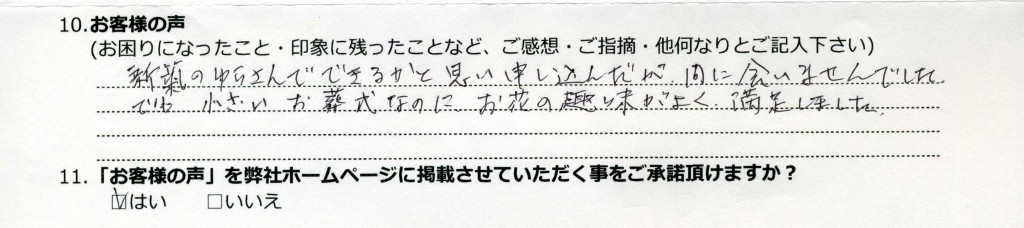 10.お客様の声
(お困りになったこと・印象に残ったことなど、ご感想・ご指摘・他何なりとご記入下さい)
新氣のゆうさんでできるかと思い申し込んだが、間に会いませんでした
でも 小さい お葬式なのに お花の趣味がよく 満足しました。
11.「お客様の声」を弊社ホームページに掲載させていただく事をご承諾頂けますか？
☑はい □いいえ